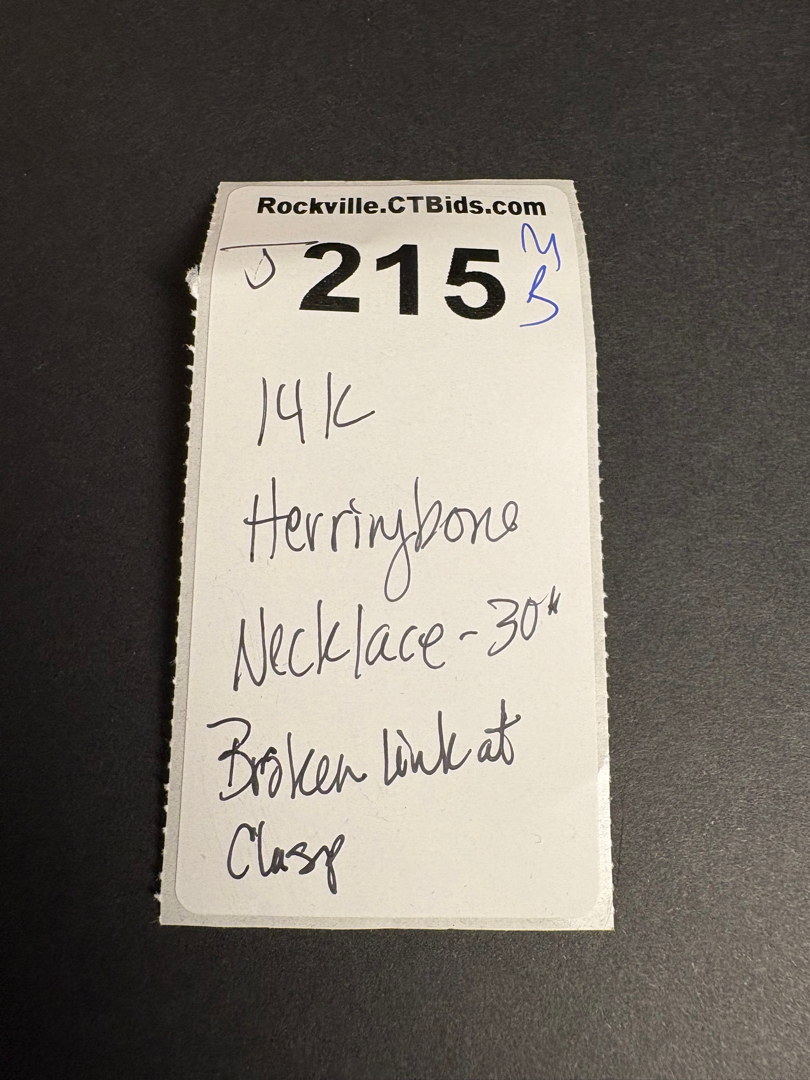 Rockville.CTBids.com
J 215 MB
14K
Herringbone
Necklace - 30"
Broken link at
Clasp